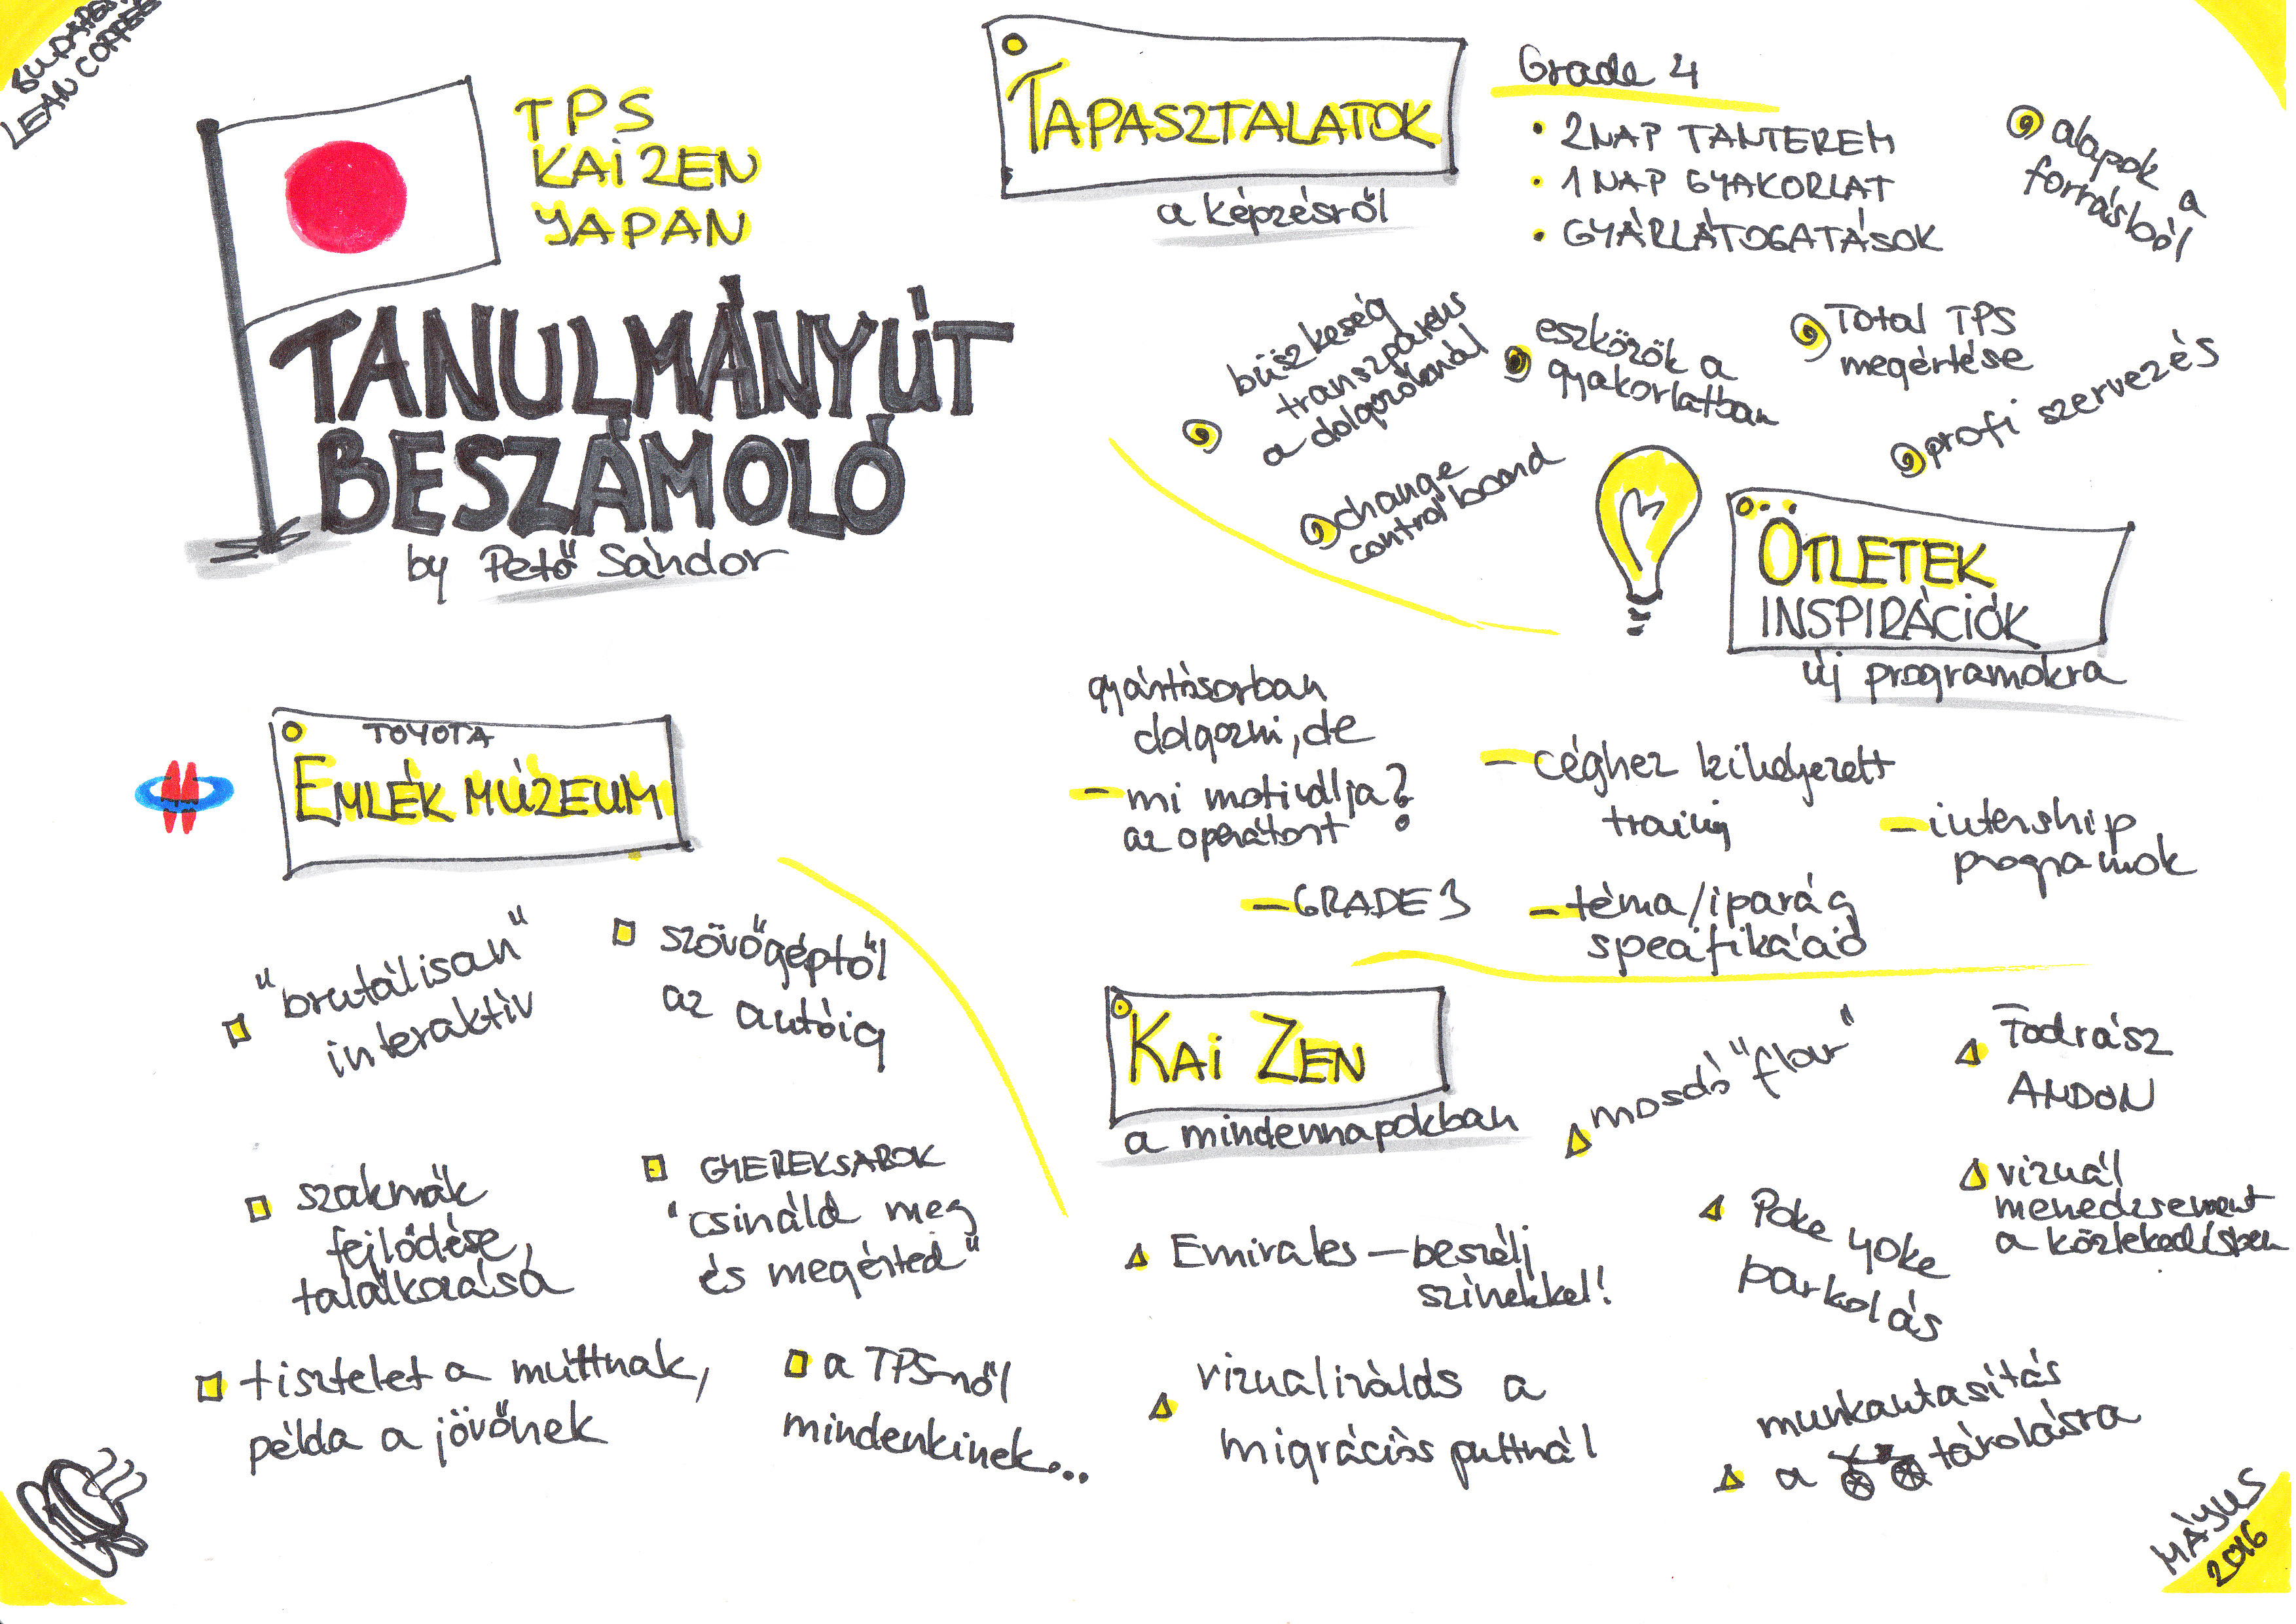 BUDAPEST
LEAN COFFEE
TPS
KAIZEN
JAPAN
TANULMÁNYÚT
BESZÁMOLÓ
by Pető Sándor
TAPASZTALATOK
a képzésről
Grade 4
• 2 NAP TANTEREM
• 1 NAP GYAKORLAT
• GYÁRLÁTOGATÁSOK
alapok a
forrásból
büszkeség
transzparens
a dolgozóknál
eszközök a
gyakorlatban
Total TPS
megértése
profi szervezés
change
control board
ÖTLETEK
INSPIRÁCIÓK
új programokra
gyártósorban
dolgozni, de
– mi motiválja?
az operátort
– céghez kihelyezett
training
– internship
programok
– GRADE 3
– téma/iparág
specifikáció
TOYOTA
EMLÉK MÚZEUM
"brutálisan"
interaktív
szövőgéptől
az autóig
szakmák
fejlődése,
találkozása
GYEREKSAROK
"csináld meg
és megérted"
tisztelet a múltnak,
példa a jövőnek
a TPS-ről
mindenkinek...
KAI ZEN
a mindennapokban
mosdó "flow"
Fodrász
ANDON
Emirates – beszélj
színekkel!
Poke yoke
parkolás
vizuál
menedzsment
a közlekedésben
vizualizálás a
migrációs pultnál
munkautasítás
a tárolásra
MÁJUS
2016